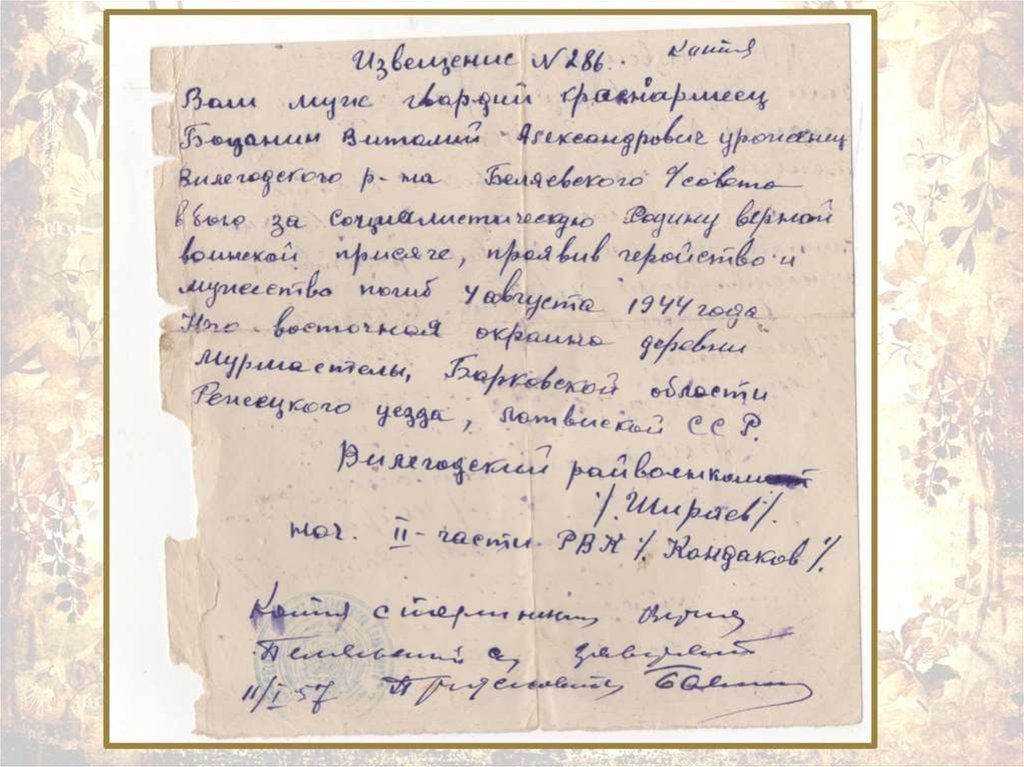 Извещение N 286. Копия
Ваш муж гвардий красноармеец
Боцанин Виталий Александрович уроженец
Вилегодского р-на Беляевского с/совета
в бою за социалистическую Родину верной
воинской присяге, проявив геройство и
мужество погиб 4 августа 1944 года
Ю-го восточная окраина деревни
Мурмастелы, Барковской области
Режецкого уезда, Латвиской ССР.
Вилегодский райвоенком
/. Ширяев /.
нач. II-части РВК /. Кондаков /.
Копия с верна
11/I-57